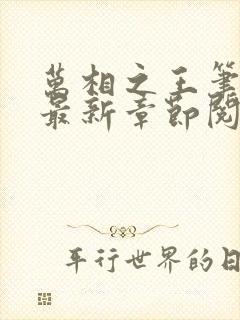 萬相之王筆
最新章節閱
平行世界的日